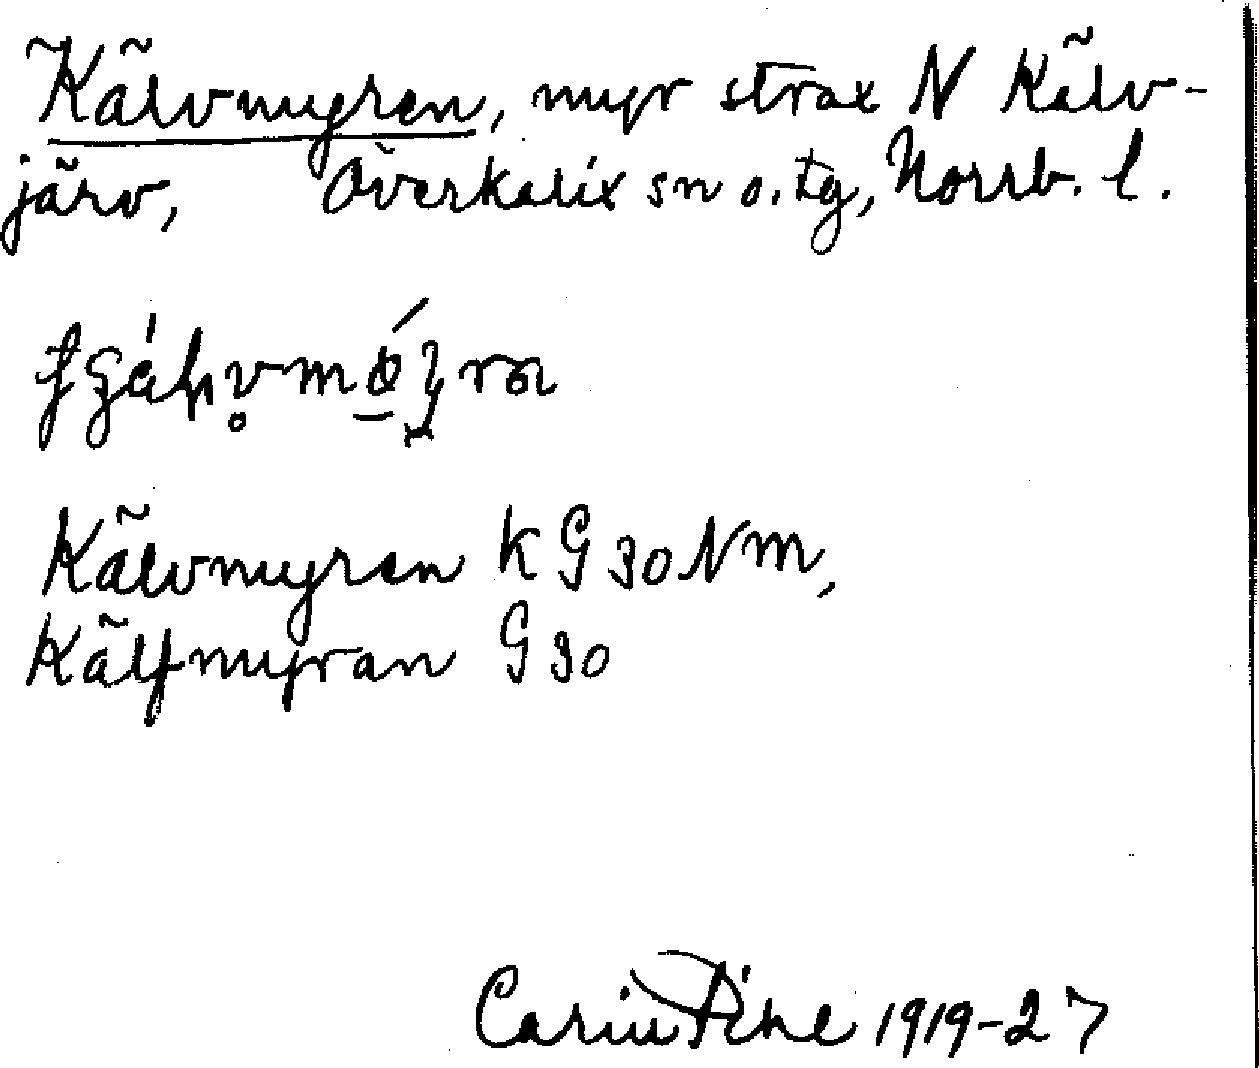 Kälvmyren, myr strax N Kälv-
järv, Överkalix sn o. tg, Norrb. l.
Kälvmyren k G 30 N m,
Kälfmyran G 30
Carin Pihl 1919-27